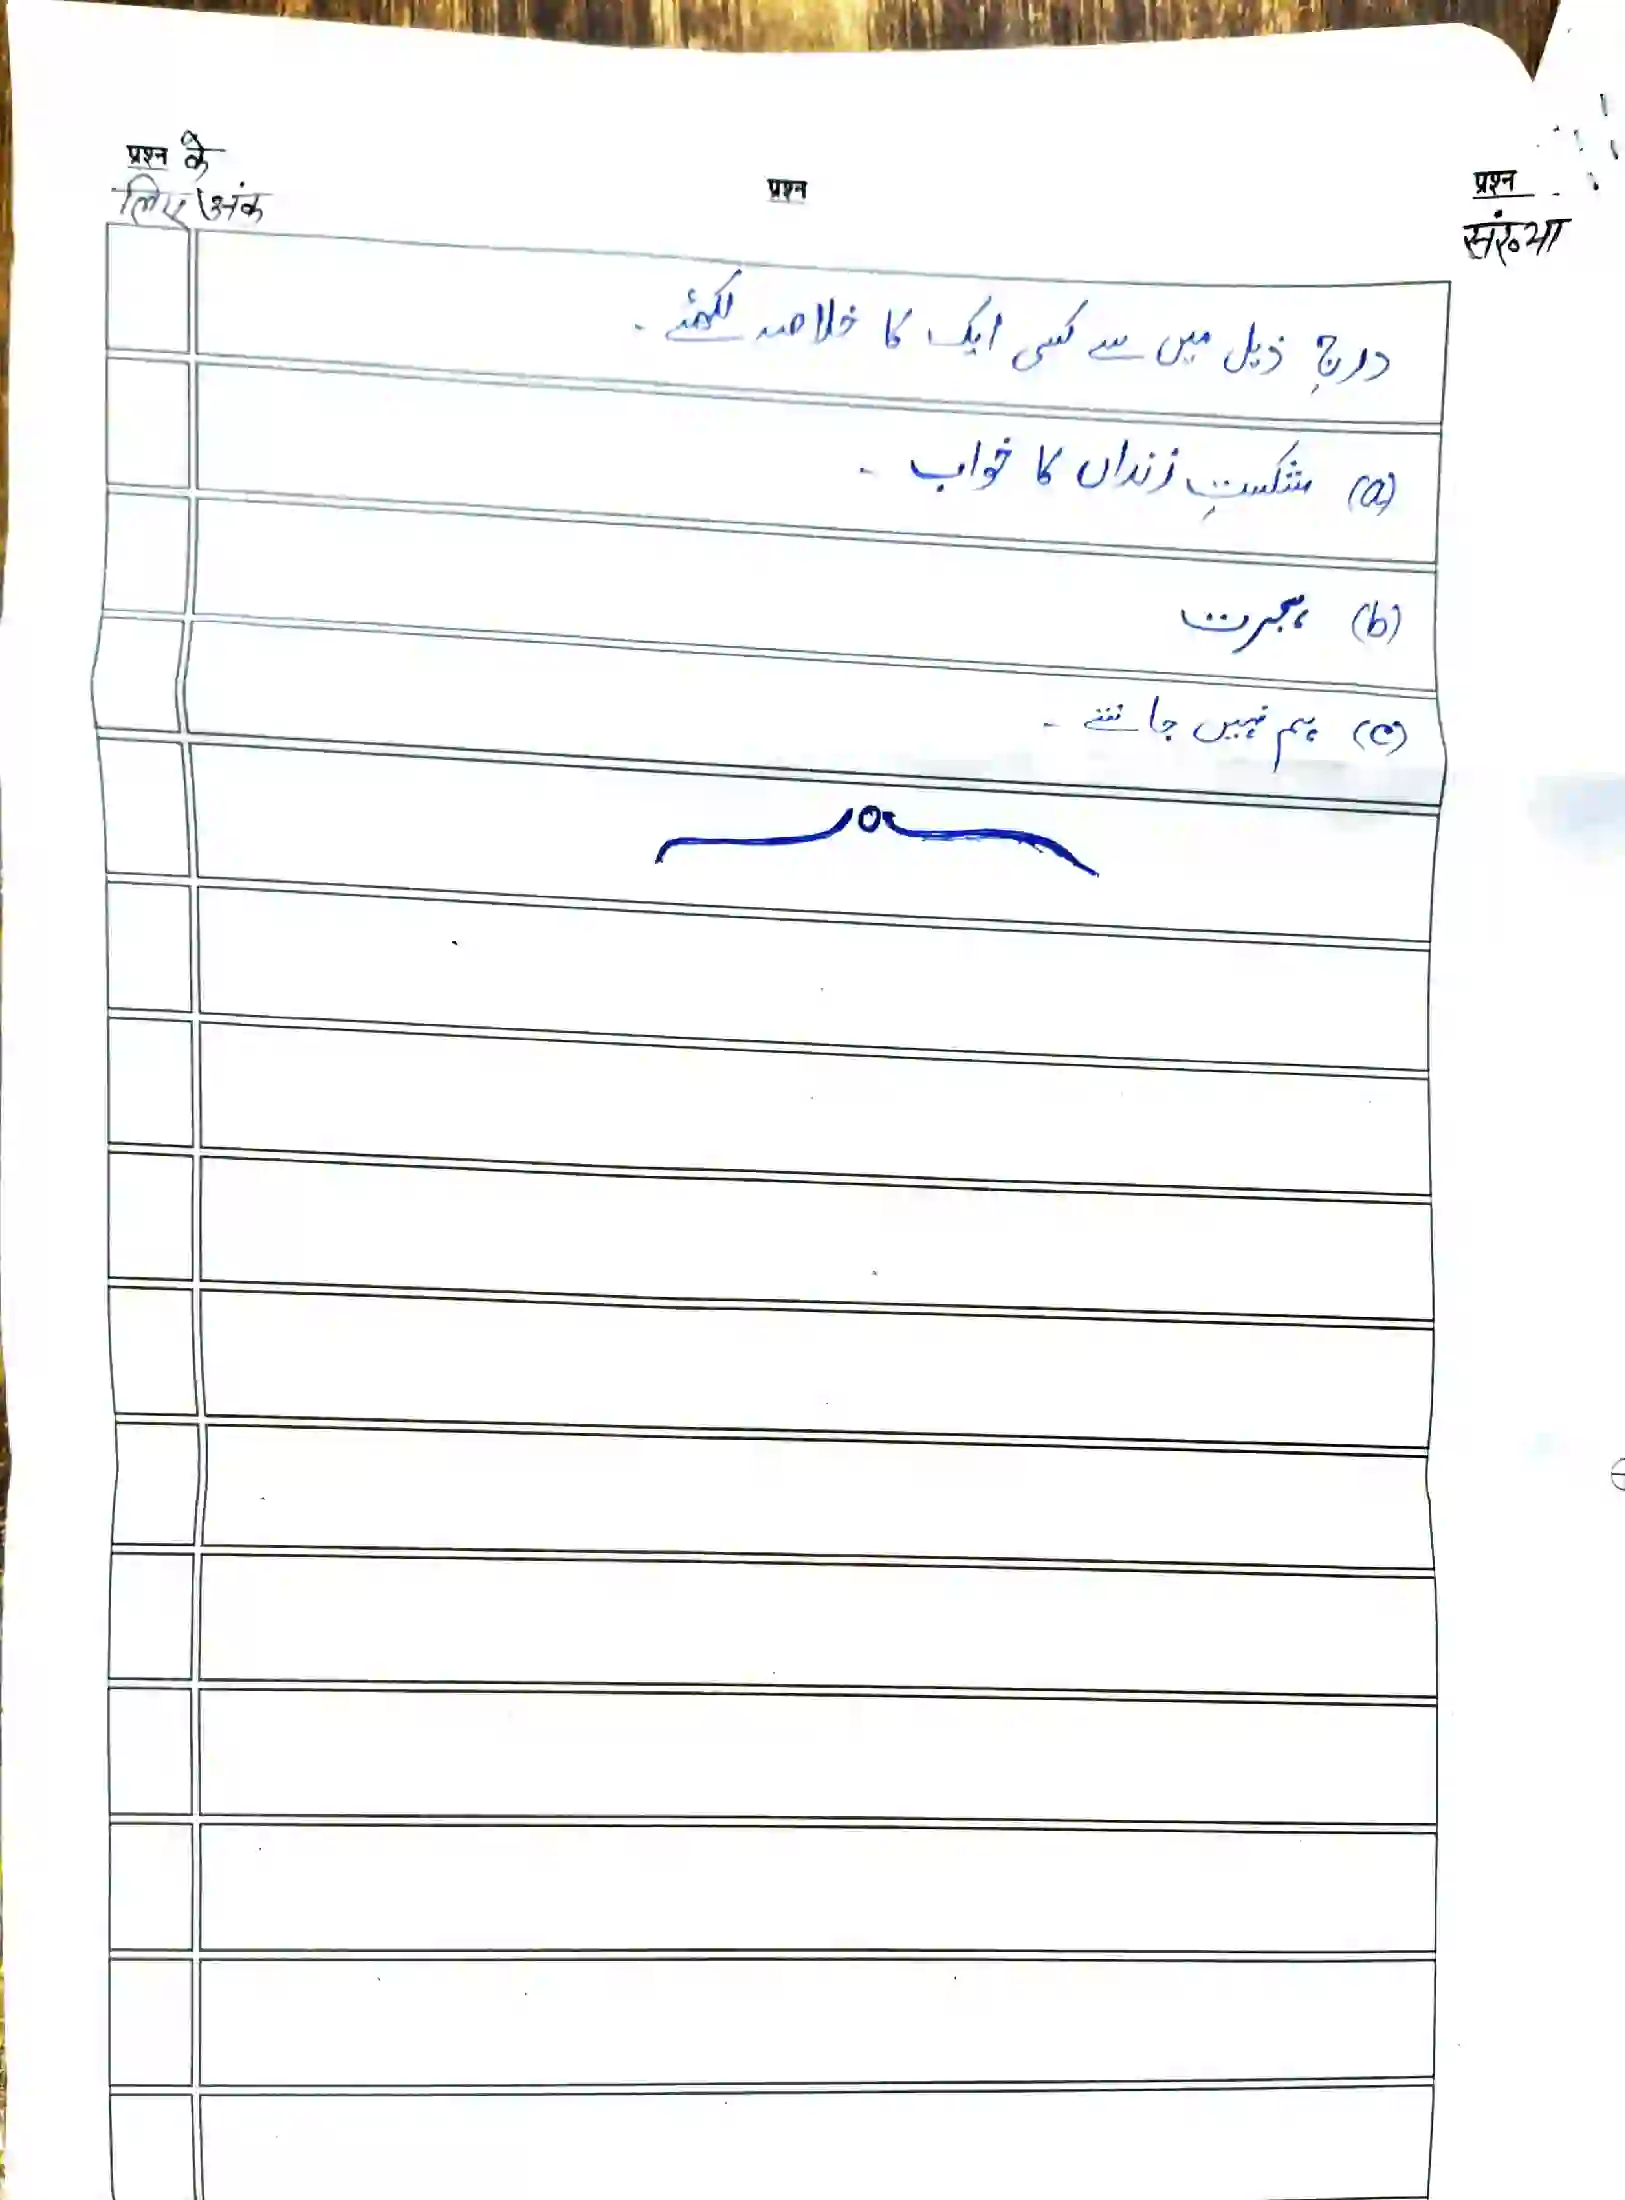 प्रश्न के
लिए अंक
प्रश्न
प्रश्न
संख्या
درجِ ذیل میں سے کسی ایک کا خلاصہ لکھئے۔
(a) شکستِ زنداں کا خواب ۔
(b) ہجرت
(c) ہم نہیں جانتے ۔